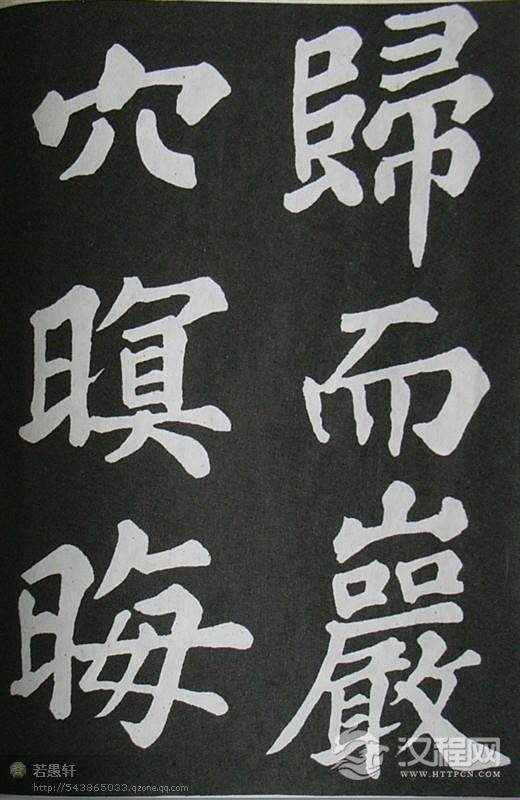 歸而巖
穴暝晦
若愚轩
http://543865033.qzone.qq.com
汉程网
WWW.HTTPCN.COM